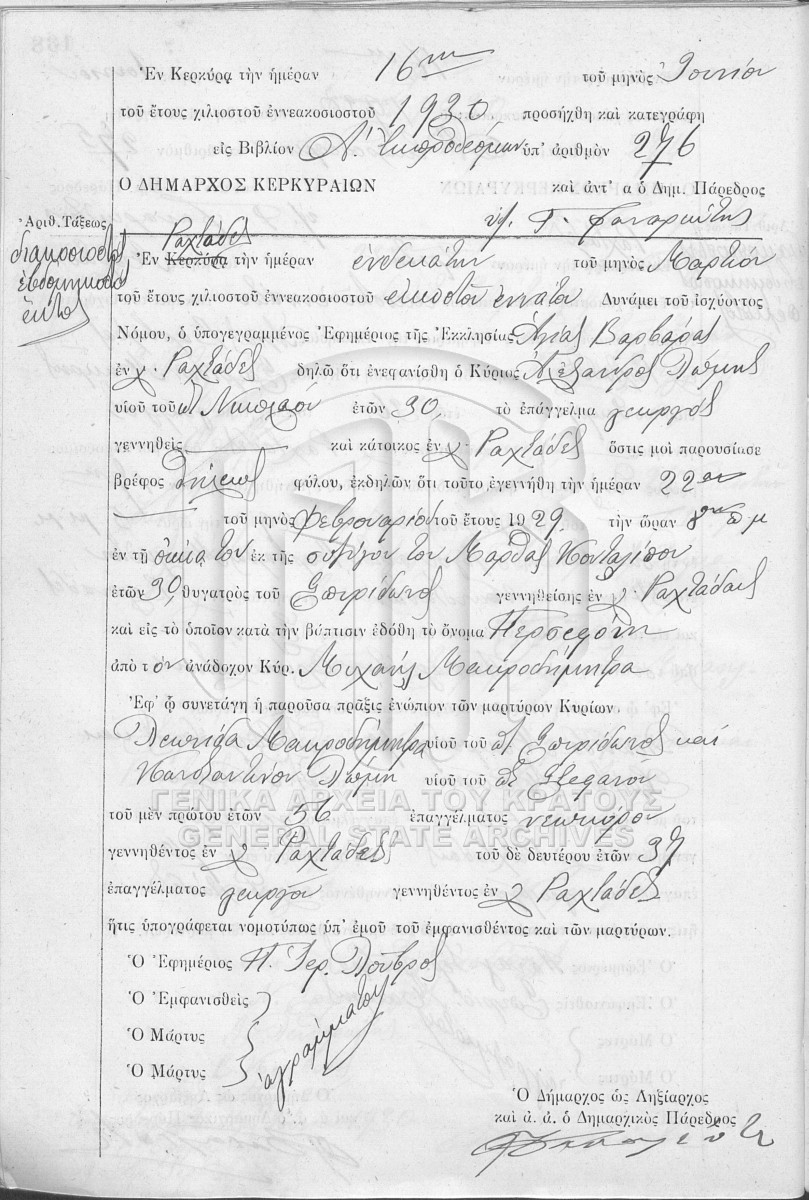 Ἐν Κερκύρᾳ τὴν ἡμέραν 16ην τοῦ μηνὸς Ἰουνίου
τοῦ ἔτους χιλιοστοῦ ἐννεακοσιοστοῦ 1930 προσήχθη καὶ κατεγράφη
εἰς Βιβλίον Α. Ἐκπροθέσμων ὑπ' ἀριθμὸν 276
Ο ΔΗΜΑΡΧΟΣ ΚΕΡΚΥΡΑΙΩΝ καὶ ἀντ' α ὁ Δημ. Πάρεδρος
Ἀριθ. Τάξεως
διακοσιοστὸς
ἑβδομηκοστὸς
ἕκτος
Ραχτάδες
Ἐν Κερκύρᾳ τὴν ἡμέραν ἑνδεκάτην τοῦ μηνὸς Μαρτίου
τοῦ ἔτους χιλιοστοῦ ἐννεακοσιοστοῦ εἰκοστοῦ ἐννάτου Δυνάμει τοῦ ἰσχύοντος
Νόμου, ὁ ὑπογεγραμμένος Ἐφημέριος τῆς Ἐκκλησίας Ἁγίας Βαρβάρας
ἐν χ. Ραχτάδες δηλῶ ὅτι ἐνεφανίσθη ὁ Κύριος Ἀλέξανδρος
υἱοῦ τοῦ Νικολάου ἐτῶν 30 τὸ ἐπάγγελμα γεωργὸς
γεννηθεὶς καὶ κάτοικος ἐν χ. Ραχτάδες ὅστις μοὶ παρουσίασε
βρέφος θήλεος φύλου, ἐκδηλῶν ὅτι τοῦτο ἐγεννήθη τὴν ἡμέραν 22αν
τοῦ μηνὸς Φεβρουαρίου τοῦ ἔτους 1929 τὴν ὥραν 8ην π μ
ἐν τῇ οἰκίᾳ του ἐκ τῆς συζύγου του Μάρθας
ἐτῶν 30, θυγατρὸς τοῦ Σπυρίδωνος γεννηθείσης ἐν χ. Ραχτάδες
καὶ εἰς τὸ ὁποῖον κατὰ τὴν βάπτισιν ἐδόθη τὸ ὄνομα Περσεφόνη
ἀπὸ τὸν ἀνάδοχον Κύρ. Μιχαὴλ Μακροδήμητρα
Ἐφ' ᾧ συνετάγη ἡ παροῦσα πρᾶξις ἐνώπιον τῶν μαρτύρων Κυρίων
Λεωνίδα Μακροδήμητρα υἱοῦ τοῦ Σπυρίδωνος καὶ
Κωνσταντίνου υἱοῦ τοῦ Στεφανοῦ
ΓΕΝΙΚΑ ΑΡΧΕΙΑ ΤΟΥ ΚΡΑΤΟΥΣ
τοῦ μὲν πρώτου ἐτῶν 56 ἐπαγγέλματος νεωκόρου
GENERAL STATE ARCHIVES
γεννηθέντος ἐν χ Ραχτάδες τοῦ δὲ δευτέρου ἐτῶν 37
ἐπαγγέλματος γεωργοῦ γεννηθέντος ἐν χ Ραχτάδες
ἥτις ὑπογράφεται νομοτύπως ὑπ' ἐμοῦ τοῦ ἐμφανισθέντος καὶ τῶν μαρτύρων.
Ὁ Ἐφημέριος
Ὁ Ἐμφανισθεὶς
Ὁ Μάρτυς
Ὁ Μάρτυς
ἀγράμματοι
Ὁ Δήμαρχος ὡς Ληξίαρχος
καὶ ἀ. ἀ. ὁ Δημαρχικὸς Πάρεδρος